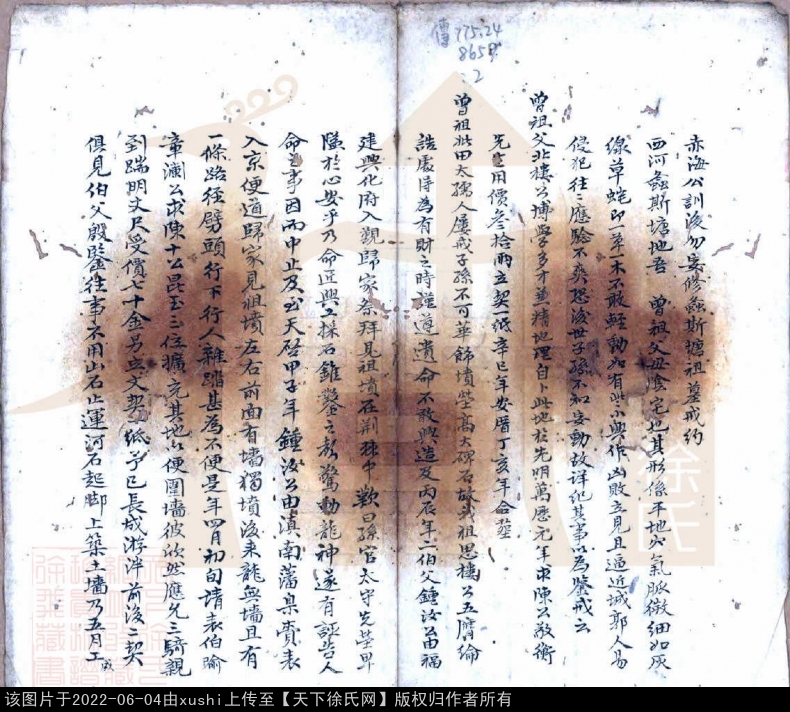 傳 775.24
865
2
赤海公訓後勿妄修螽斯塘祖墓戒約
西河螽斯塘地吾 曾祖父母陰宅也其形係平地穴氣脈微細如灰
線草蛇即一草一木不敢輕動如有些小興作凶敗立見且逼近城郭人易
侵犯往二應驗不爽恐後世子孫不知妄動故詳紀其事以為鑒戒云
曾祖父北樓公博學多才並精地理自卜此地於先明萬曆元年求陳公敬衡
先生用價叁拾兩立契一紙辛巳年安厝丁亥年合塋
曾祖妣田太孺人屢戒子孫不可華飾墳塋高大碑石故我祖思樓公五膺綸
誥處得為有財之時謹遵遺命不敢興造及丙辰年二伯父鍾汝公由福
建興化府入覲歸家祭拜見祖墳在荊棘中歎曰孫官太守先塋卑
隘於心安乎乃命匠興工採石錐鑿之聲驚動龍神遂有誣告人
命之事因而中止及至天啓甲子年鍾汝公由滇南藩臬賫表
入京便道歸家見祖墳左右前面有墻獨墳後來龍無墻且有
一條路徑劈頭行下行人雜踏甚為不便是年四月初旬請表伯喻
章瀾公求陳十公昆玉三位擴充其地以便圍墻彼欣然應允三騎親
到踹明丈尺受價七十金另立文契一紙予已長成游泮前後二契
俱見伯父殷鑒往事不用山石止運河石起脚上築土墻乃五月工
徐氏
該图片于2022-06-04由xushi上传至【天下徐氏网】版权归作者所有